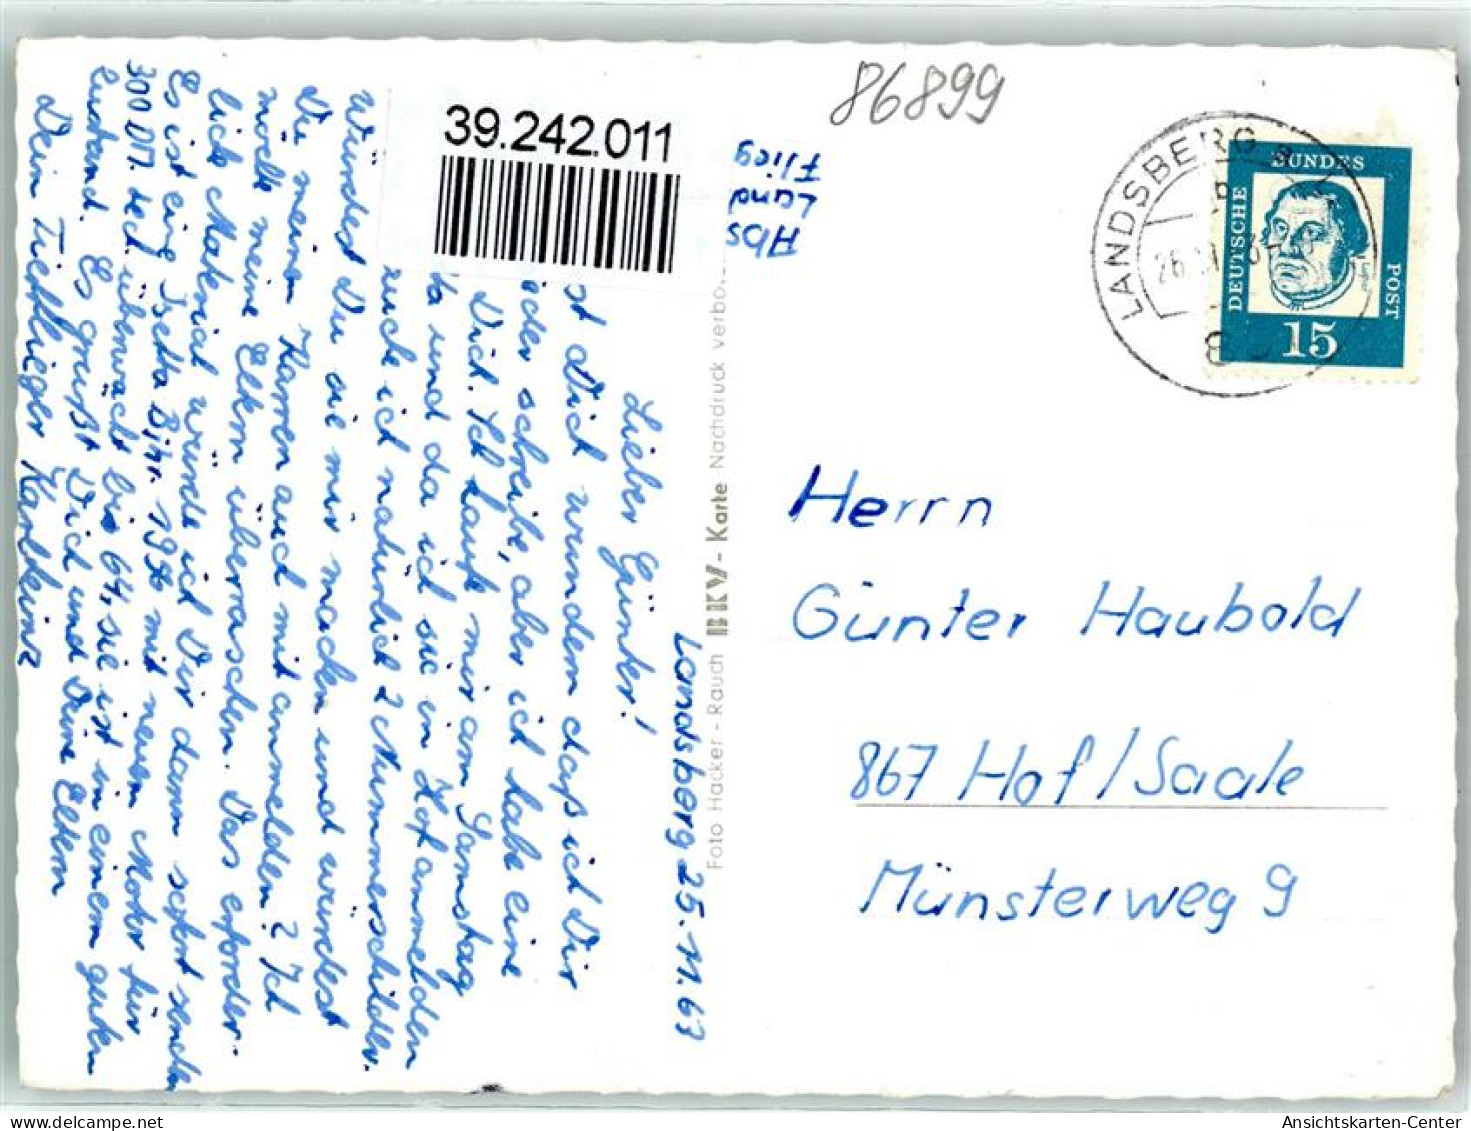 86899
39.242.011
Abs
Land
Flieg
LANDSBERG
DEUTSCHE BUNDES POST
15
Landsberg 25.11.63
Lieber Günter!
st Dich wundern daß ich Dir
der schreibe, aber ich habe eine
Dich. Ich kaufe mir am Samstag
ta und da ich sie in Hof anmelden
ich natürlich 2 Nummernschilder.
Würdest Du sie mir machen und würdest
Du meinen Karren auch mit anmelden? Ich
möcht meine Eltern überraschen. Das erforder-
lich Material würde ich Dir dann sofort senden
Es ist eine Isetta Bj. 1956 mit neuem Motor für
300 DM. überwacht bis 64, sie ist in einem guten
Zustand. Es grüßt Dich und Deine Eltern
Dein Tiefflieger Karlheinz
Foto Hacker-Rauch BKV-Karte Nachdruck verbo
Herrn
Günter Haubold
867 Hof/Saale
Münsterweg 9
Ansichtskarten-Center